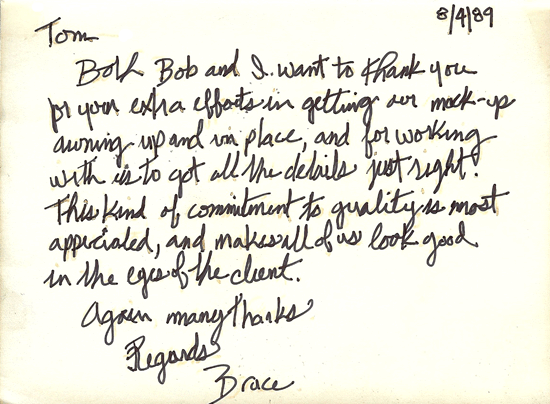 8/4/89
Tom
Both Bob and I want to thank you
for your extra efforts in getting our mock-up
awning up and in place, and for working
with us to get all the details just right!
This kind of commitment to quality is most
appreciated, and makes all of us look good
in the eyes of the client.
Again many thanks
Regards
Bruce